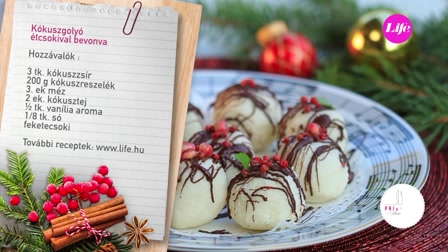 Kókuszgolyó
étcsokival bevonva
Hozzávalók :
3 tk. kókuszzsír
200 g kókuszreszelék
3. ek méz
2 ek. kókusztej
½ tk. vanília aroma
1/8 tk. só
feketecsoki
További receptek: www.life.hu
Life